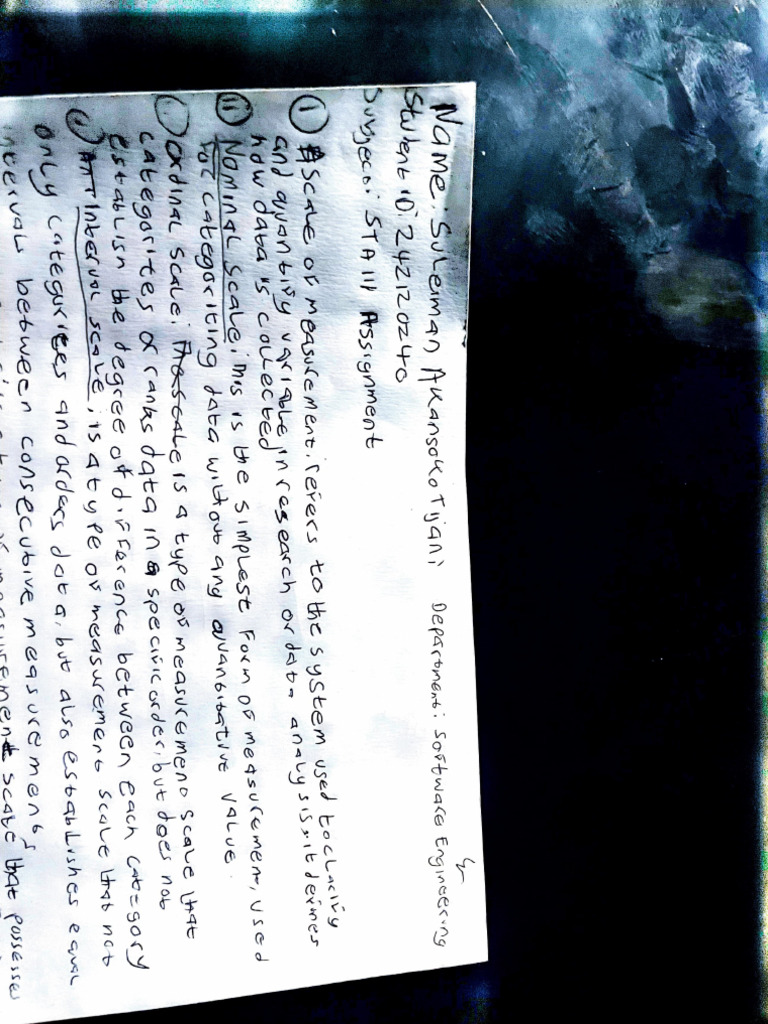 Name: Suleiman Akansoko Tijani Department: Software Engineering
Student ID: 242120240
Subject: STA 111 Assignment
(i) Scale of measurement: refers to the system used to clarify
and quantify variable in research or data analysis it defines
how data is collected
(ii) Nominal scale: This is the simplest form of measurement, used
for categoriting data without any quantitative value.
ordinal scale: is a type of measurement scale that
categorites or ranks data in a specific order, but does not
establish the degree of difference between each category
Interval scale, is a type of measurement scale that not
only categories and orders data, but also establishes equal
intervals between consecutive measurements
measurement scale that possesses